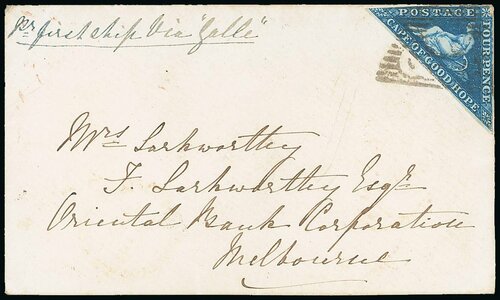 Pr first ship Via "Galle"
POSTAGE
FOUR PENCE
CAPE OF GOOD HOPE
Mrs Larkworthy
F. Larkworthy Esqr
Oriental Bank Corporation
Melbourne